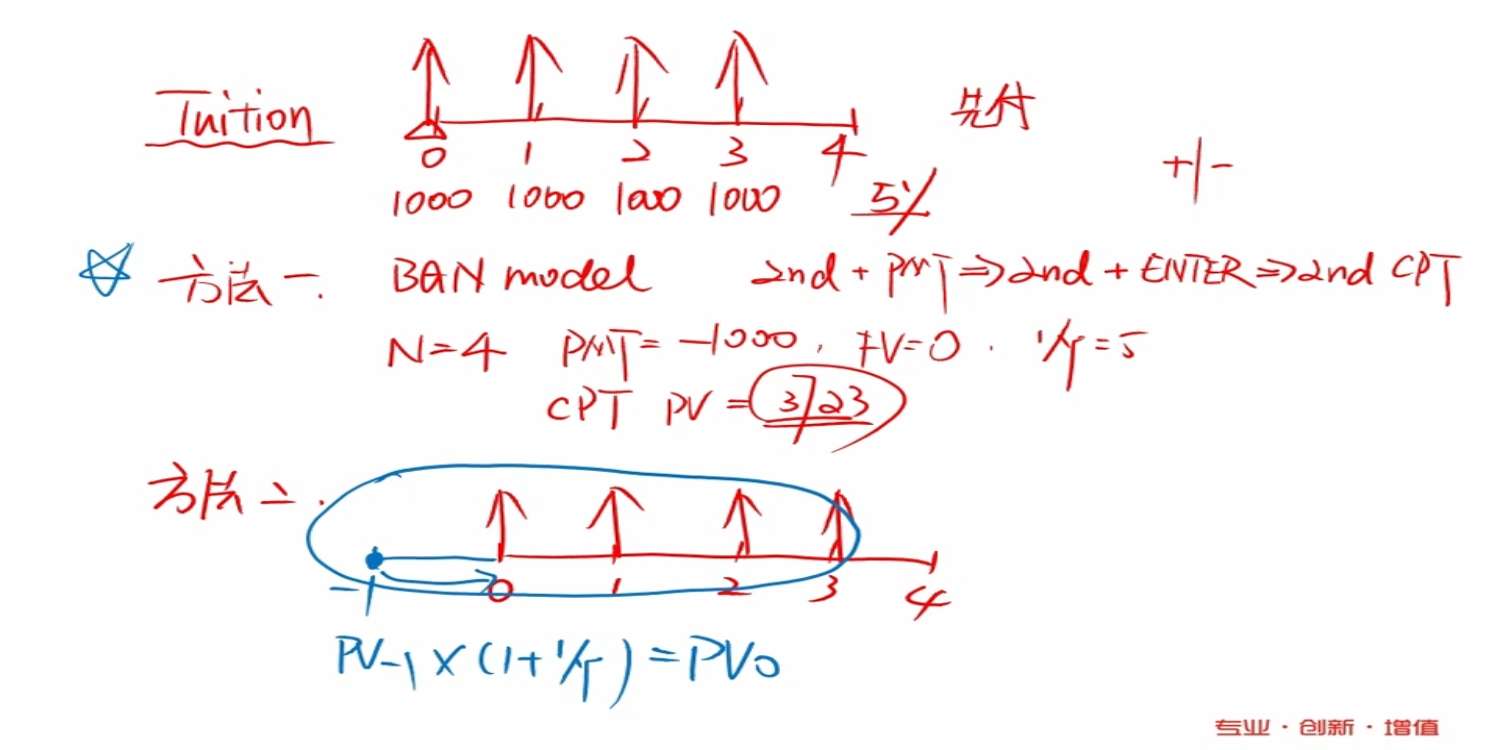 Tuition
先付
+/-
0 1 2 3 4
1000 1000 1000 1000 5%
方法一. BGN model 2nd + PMT⇒2nd + ENTER⇒2nd CPT
N=4 PMT=-1000, FV=0. I/Y=5
CPT PV=3723
方法二.
-1 0 1 2 3 4
PV-1×(1+I/Y)=PV0
专业·创新·增值